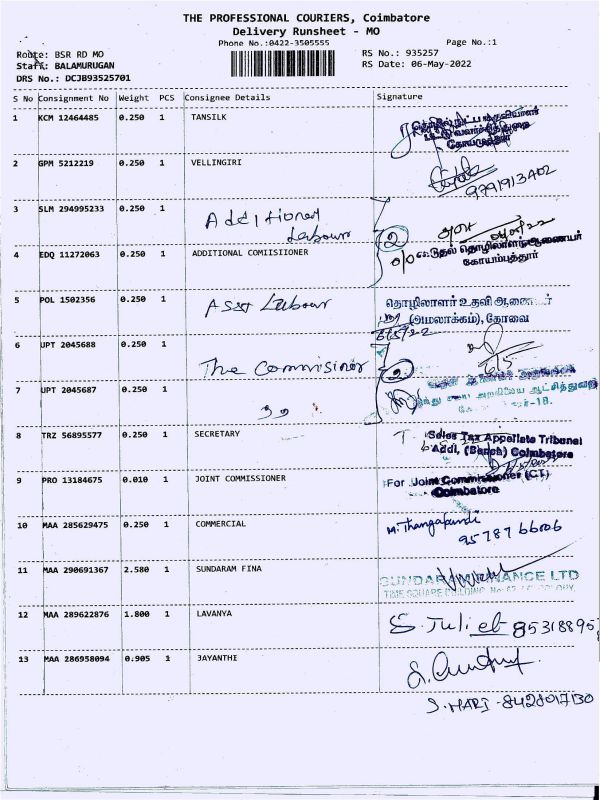 THE PROFESSIONAL COURIERS, Coimbatore
Delivery Runsheet - MO
Phone No.:0422-3505555 Page No.:1
Route: BSR RD MO RS No.: 935257
Staff: BALAMURUGAN RS Date: 06-May-2022
DRS No.: DCJB93525701
S No Consignment No Weight PCS Consignee Details Signature
1 KCM 12464485 0.250 1 TANSILK
2 GPM 5212219 0.250 1 VELLINGIRI
9791913402
3 SLM 294995233 0.250 1 Additional Labour
4 EDQ 11272063 0.250 1 ADDITIONAL COMIISIIONER
கூடுதல் தொழிலாளர் ஆணையர்
கோயம்புத்தூர்
5 POL 1502356 0.250 1 Asst Labour
தொழிலாளர் உதவி ஆணையர்
(அமலாக்கம்), கோவை
6/5/22
6 UPT 2045688 0.250 1 The Commisiner
6/5
7 UPT 2045687 0.250 1
8 TRZ 56895577 0.250 1 SECRETARY
Sales Tax Appellate Tribunal
Addl, (Bench) Coimbatore
9 PRO 13184675 0.010 1 JOINT COMMISSIONER
For Joint Commissioner (CT)
Coimbatore
10 MAA 285629475 0.250 1 COMMERCIAL
M. Thangapandi
9578766006
11 MAA 290691367 2.580 1 SUNDARAM FINA
SUNDARAM FINANCE LTD
12 MAA 289622876 1.800 1 LAVANYA
S. Juliet 85318895
13 MAA 286958094 0.905 1 JAYANTHI
J. HARI - 8428017130